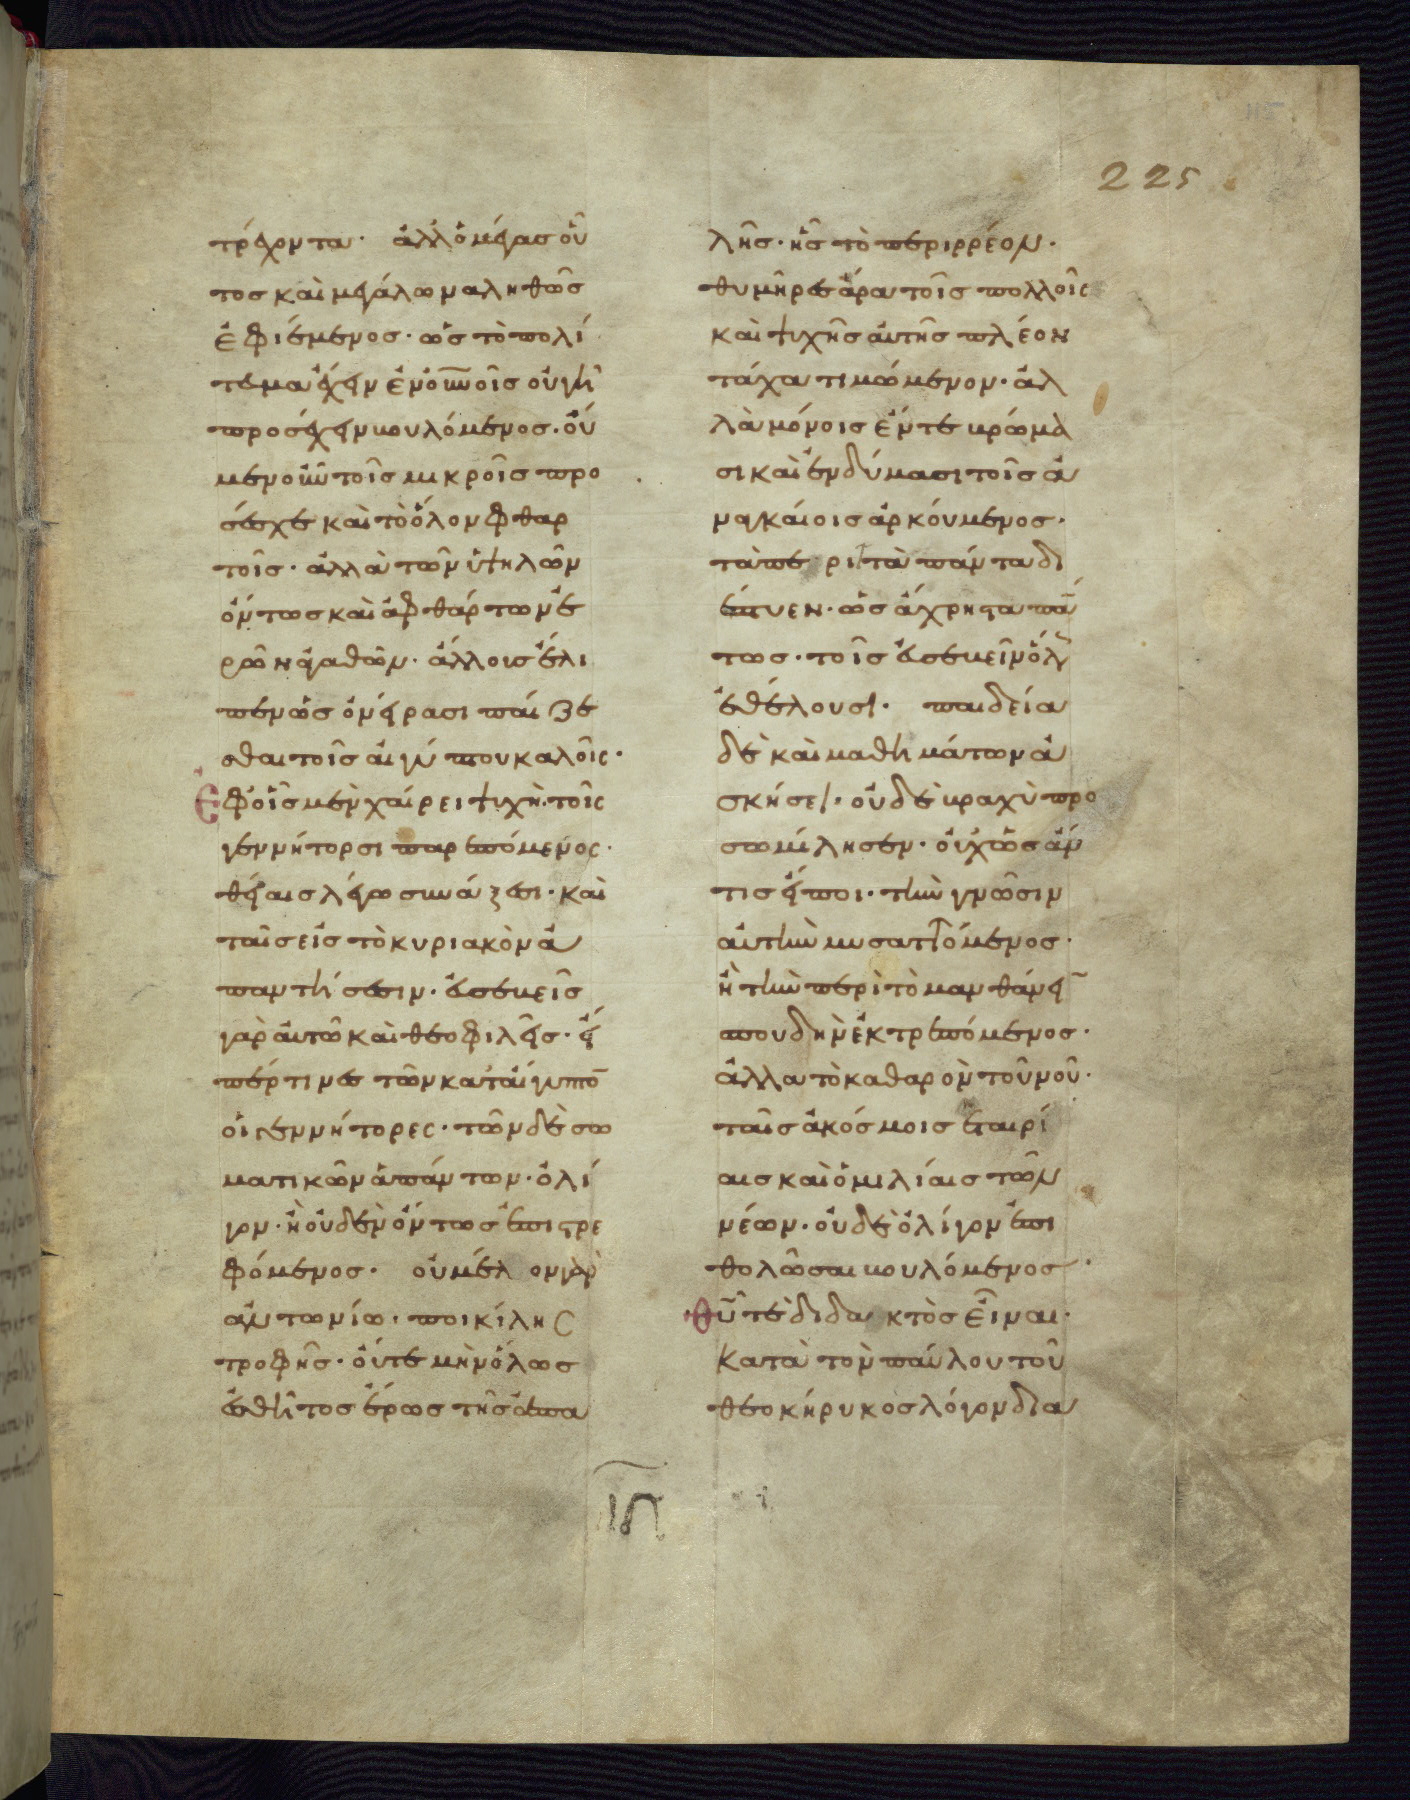 225
τρέχοντα· ἀλλ' ὁ μέγας οὗ
τος καὶ μεγάλων ἀληθῶς
ἐφιέμενος· ὡς τὸ πολί
τευμα ἔχειν ἐν οὐνοῖς οὐ γῆ
προσέχειν βουλόμενος· οὐ
μενοῦν τοῖς μικροῖς προ
σέσχε καὶ τὸ ὅλον φθαρ
τοῖς· ἀλλὰ τῶν ὑψηλῶν
ὄντως καὶ ἀφθάρτων ἐ
ρῶν ἀγαθῶν· ἄλλοις ἔλι
πεν ὡς ὀνείρασι παίζε
σθαι τοῖς αἰγύπτου καλοῖς·
Ἐφ' οἷς μὲν χαίρει ψυχὴ· τοῖς
γεννήτορσι παρεπόμενος·
θείαις λέγω συνάξεσι· καὶ
ταῖς εἰς τὸ κυριακὸν ἀ
παντήσεσιν· εὐσεβεῖς
γὰρ αὐτῶ καὶ θεοφιλεῖς· εἴ
πέρ τινες τῶν κατ' αἴγυπτο
οἱ γεννήτορες· τῶν δὲ σω
ματικῶν ἁπάντων· ὀλί
γον· ἢ οὐδὲν ὄντως ἐπιστρε
φόμενος· οὐ μέλον γὰρ
ἀντωνίω· ποικίλης
τροφῆς· οὔτε μὴν ὅλως
εὐήθης τὸς ἔρως τῆς ἁπα
λῆς· ἧς τὸ περιρρέον·
θυμῆρες ἄρα τοῖς πολλοῖς
καὶ ψυχῆς αὐτῆς πλέον
τάχα τιμώμενον· ἀλ
λὰ μόνοις ἔν τε βρώμα
σι καὶ ἐνδύμασι τοῖς ἀ
ναγκαίοις ἀρκούμενος·
τὰ περιττὰ πάντα δι
έπτυεν· ὡς ἄχρηστα πάν
τως· τοῖς εὐσεβεῖν ὅλως
ἐθέλουσι· παιδεία
δὲ καὶ μαθημάτων ἀ
σκήσει· οὐδὲ βραχὺ προ
σωμίλησεν· οὐχ ὡς ἄν
τις εἴποι· τὴν γνῶσιν
αὐτὴν μυσαττόμενος·
ἢ τὴν περὶ τὸ μανθάνειν
σπουδὴν ἐκτρεπόμενος·
ἀλλὰ τὸ καθαρὸν τοῦ νοῦ·
ταῖς ἀκόσμοις ἑταιρί
αις καὶ ὁμιλίαις τῶν
νέων· οὐδὲ ὀλίγον ἐπι
θολῶσαι βουλόμενος·
θυ τε διδακτὸς εἶναι·
κατὰ τὸν παύλου τοῦ
θεοκήρυκος λόγον δια